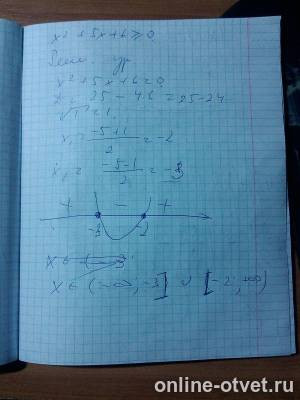 x² + 5x + 6 ≥ 0
Реш. ур
x² + 5x + 6 = 0
D = 25 - 4·6 = 25-24
√1 = 1
x₁ = -5+1 / 2 = -2
x₂ = -5-1 / 2 = -3
+ - +
-3 -2
x ∈ (-∞; -3] ∪ [-2; +∞)
online-otvet.ru